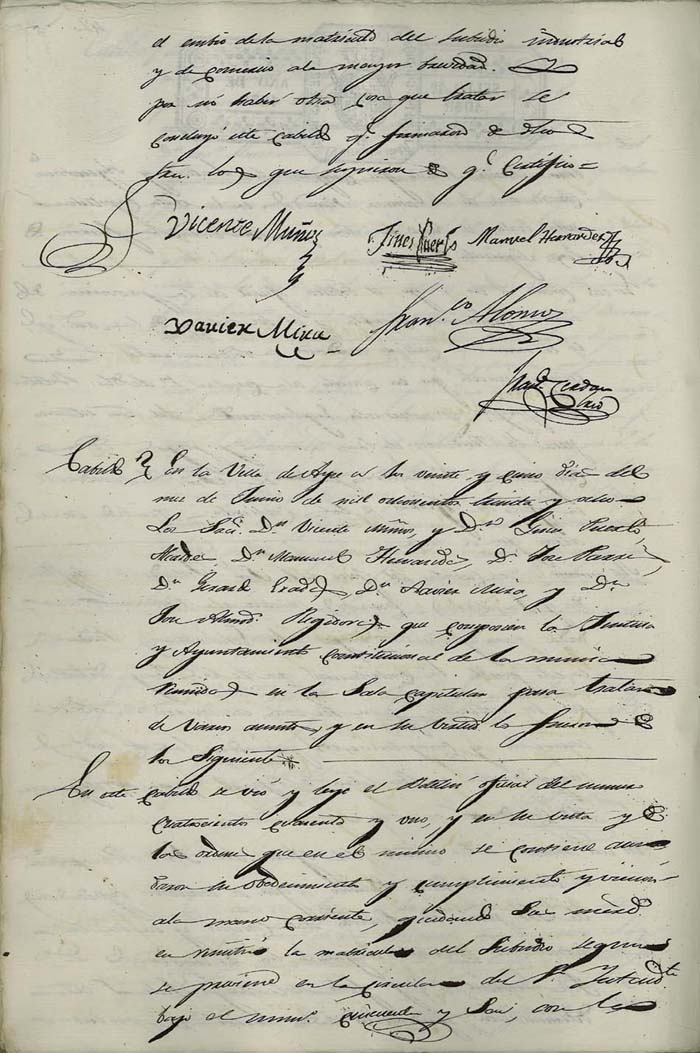 el embio de la matricula del Subsidio industrial
y de comercio al mayor brevedad. Y
por no haber otra cosa que tratar se
concluyó este cabildo q.e firmaron de dho
Sres. los que supieron de q.e Certifico =
Vicente Muñoz Jines Puerto Manuel Hernandez
Xavier Mira Fran.co Alonso
Cabildo En la Villa de Aspe a los veinte y cinco dias del
mes de Junio de mil ochocientos treinta y ocho
Los Sres. D.n Vicente Muñoz, y D.n Jines Puerto
Alcaldes, D.n Manuel Hernandez, D.n Jose
D.n Gerardo D.n Xavier Mira, y D.n
Jose Regidores que componen la Justicia
y Ayuntamiento constitucional de la misma
reunidos en la Sala capitular para tratar
de varios asuntos, y en su virtud lo hicieron de
los Siguientes
En este cabildo se vió y leyó el Boletin oficial del numero
cuatrocientos cuarenta y uno, y en su vista y de
las ordenes que en el mismo se contiene acor
daron su obedecimiento y cumplimiento y
a la mano corriente, quedando Sus mercedes
en remitir la matricula del Subsidio segun
se previene en la circular del S.r Intend.te
bajo el num.o cincuenta y Seis, con las